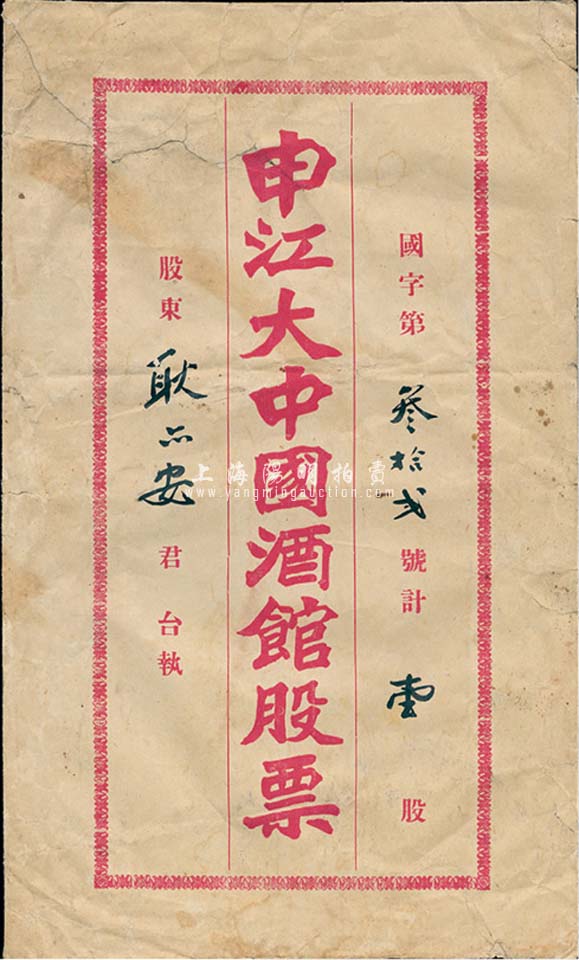 國字第 叁拾弍 號計 壹 股
申江大中國酒館股票
股東 耿 安 君台執
上海陽明拍賣
www.yangmingauction.com